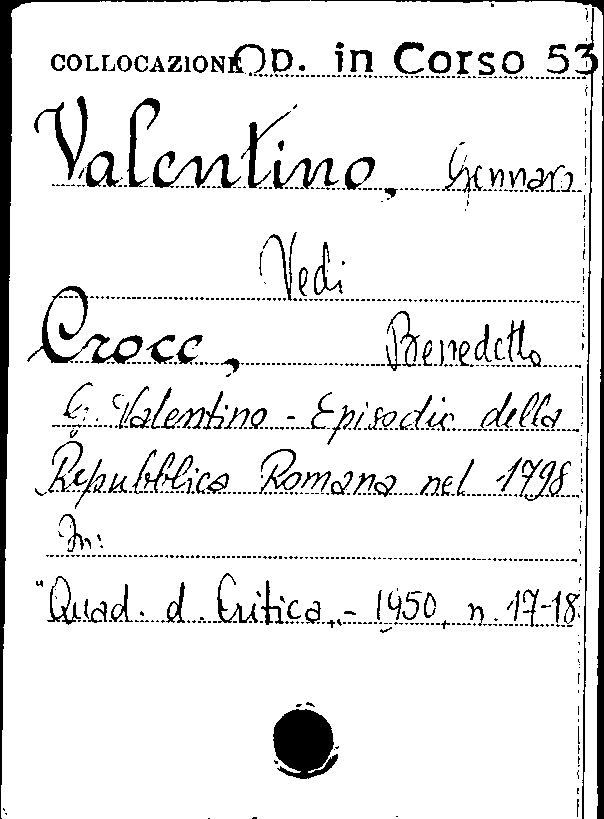 COLLOCAZIONE OD. in Corso 53
Valentino, Gennaro
Vedi
Croce, Benedetto
G. Valentino - Episodio della
Repubblica Romana nel 1798
In:
"Quad. d. Critica,,- 1950, n. 17-18